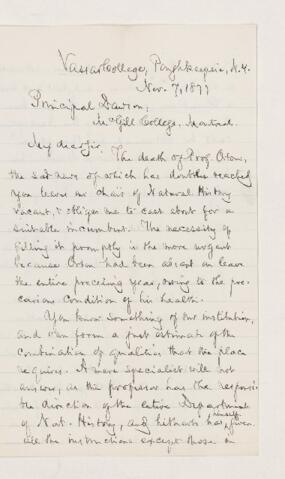 Vassar College, Poughkeepsie, N.Y.
Nov. 7, 1877
Principal Dawson,
McGill College, Montreal.
My dear Sir,
The death of Prof. Orton,
the sad news of which has doubtless reached
you leaves the chair of Natural History
vacant, & obliges me to cast about for a
suitable incumbent. The necessity of
filling it promptly is the more urgent
because Orton had been absent on leave
the entire preceding year, owing to the pre-
carious condition of his health.
You know something of our institution,
and can form a just estimate of the
combination of qualities that the place
requires. A mere specialist will not
answer, as the professor has the responsi-
ble direction of the entire Department
of Nat. History, and hitherto has himself given
all the instructions except those in